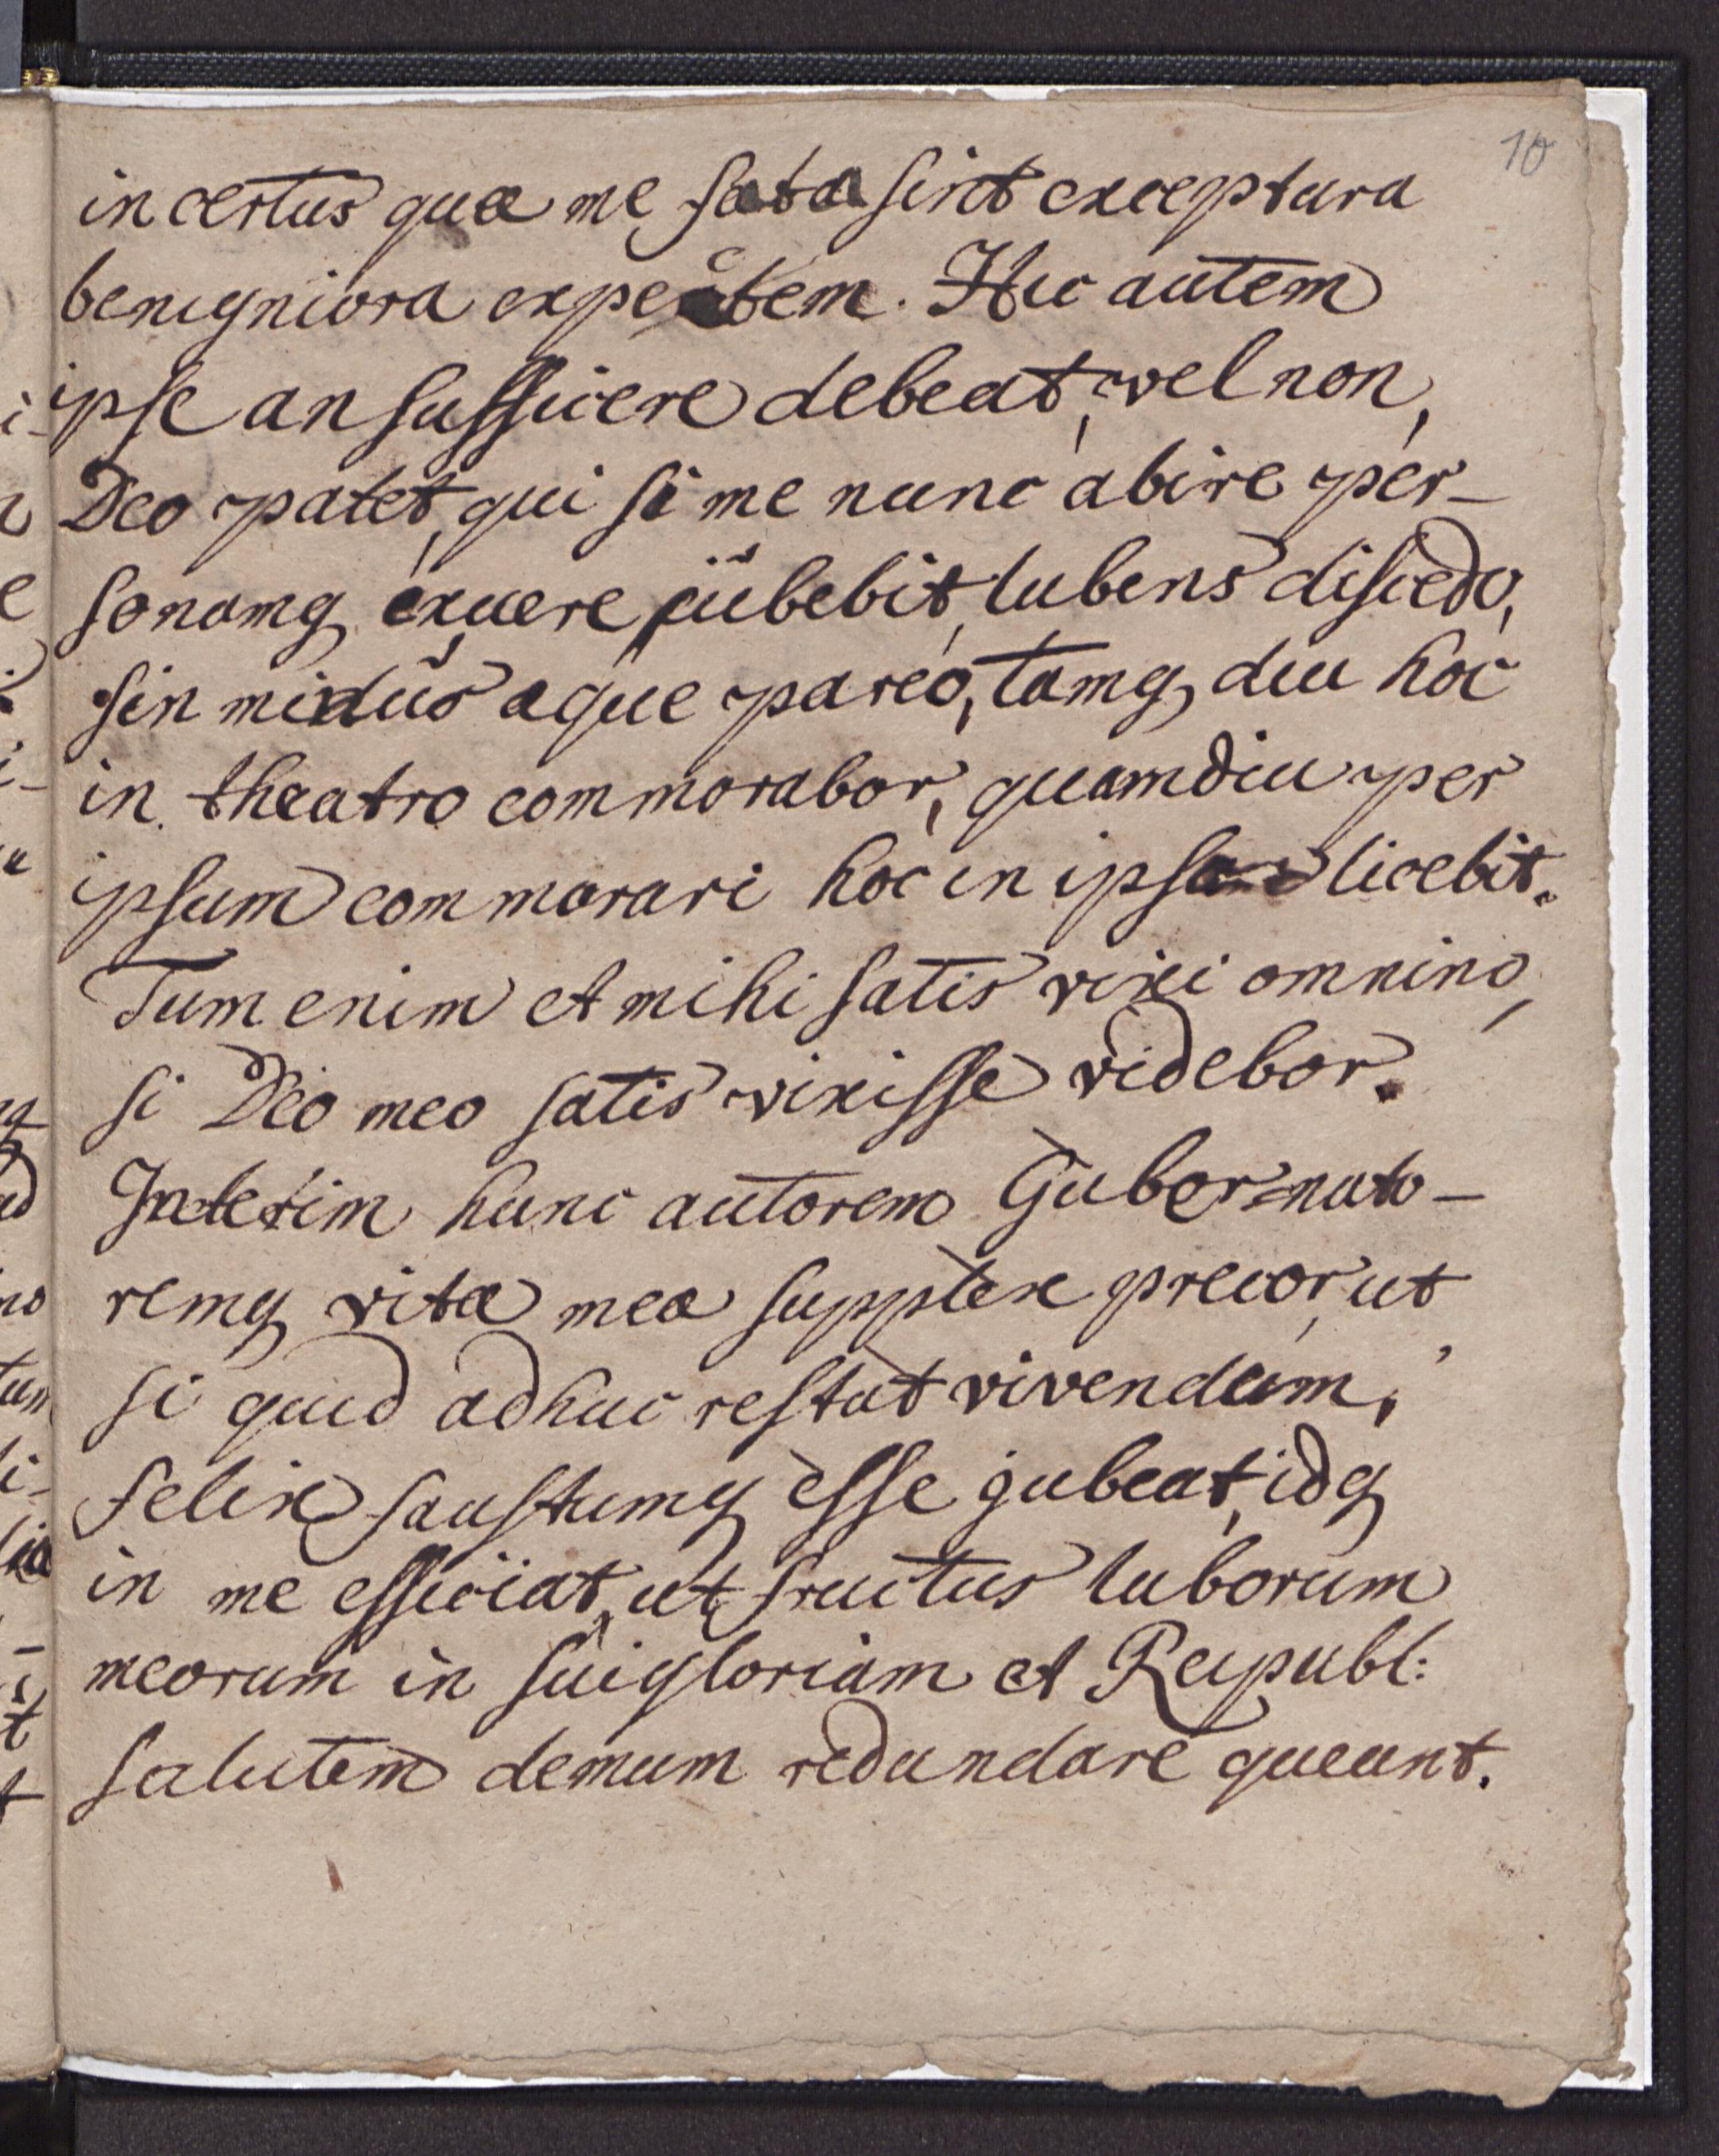 10
incertus quæ me fata sint exceptura
benigniora expectem. Hic autem
ipse an sufficere debeat, vel non,
Deo patet, qui si me nunc abire per-
sonamq exuere jubebit, lubens discedo,
sin minus æque pareo, tamq diu hoc
in theatro commorabor, quamdiu per
ipsum commorari hoc in ipso licebit.
Tum enim et mihi satis vixi omnino,
si Deo meo satis vixisse videbor.
Interim hunc autorem Gubernato-
remq vitæ meæ supplex precor, ut,
si quid adhuc restat vivendum,
felix faustumq esse jubeat, idq
in me efficiat, ut fructus laborum
meorum in sui gloriam et Reipubl:
salutem demum redundare queant.